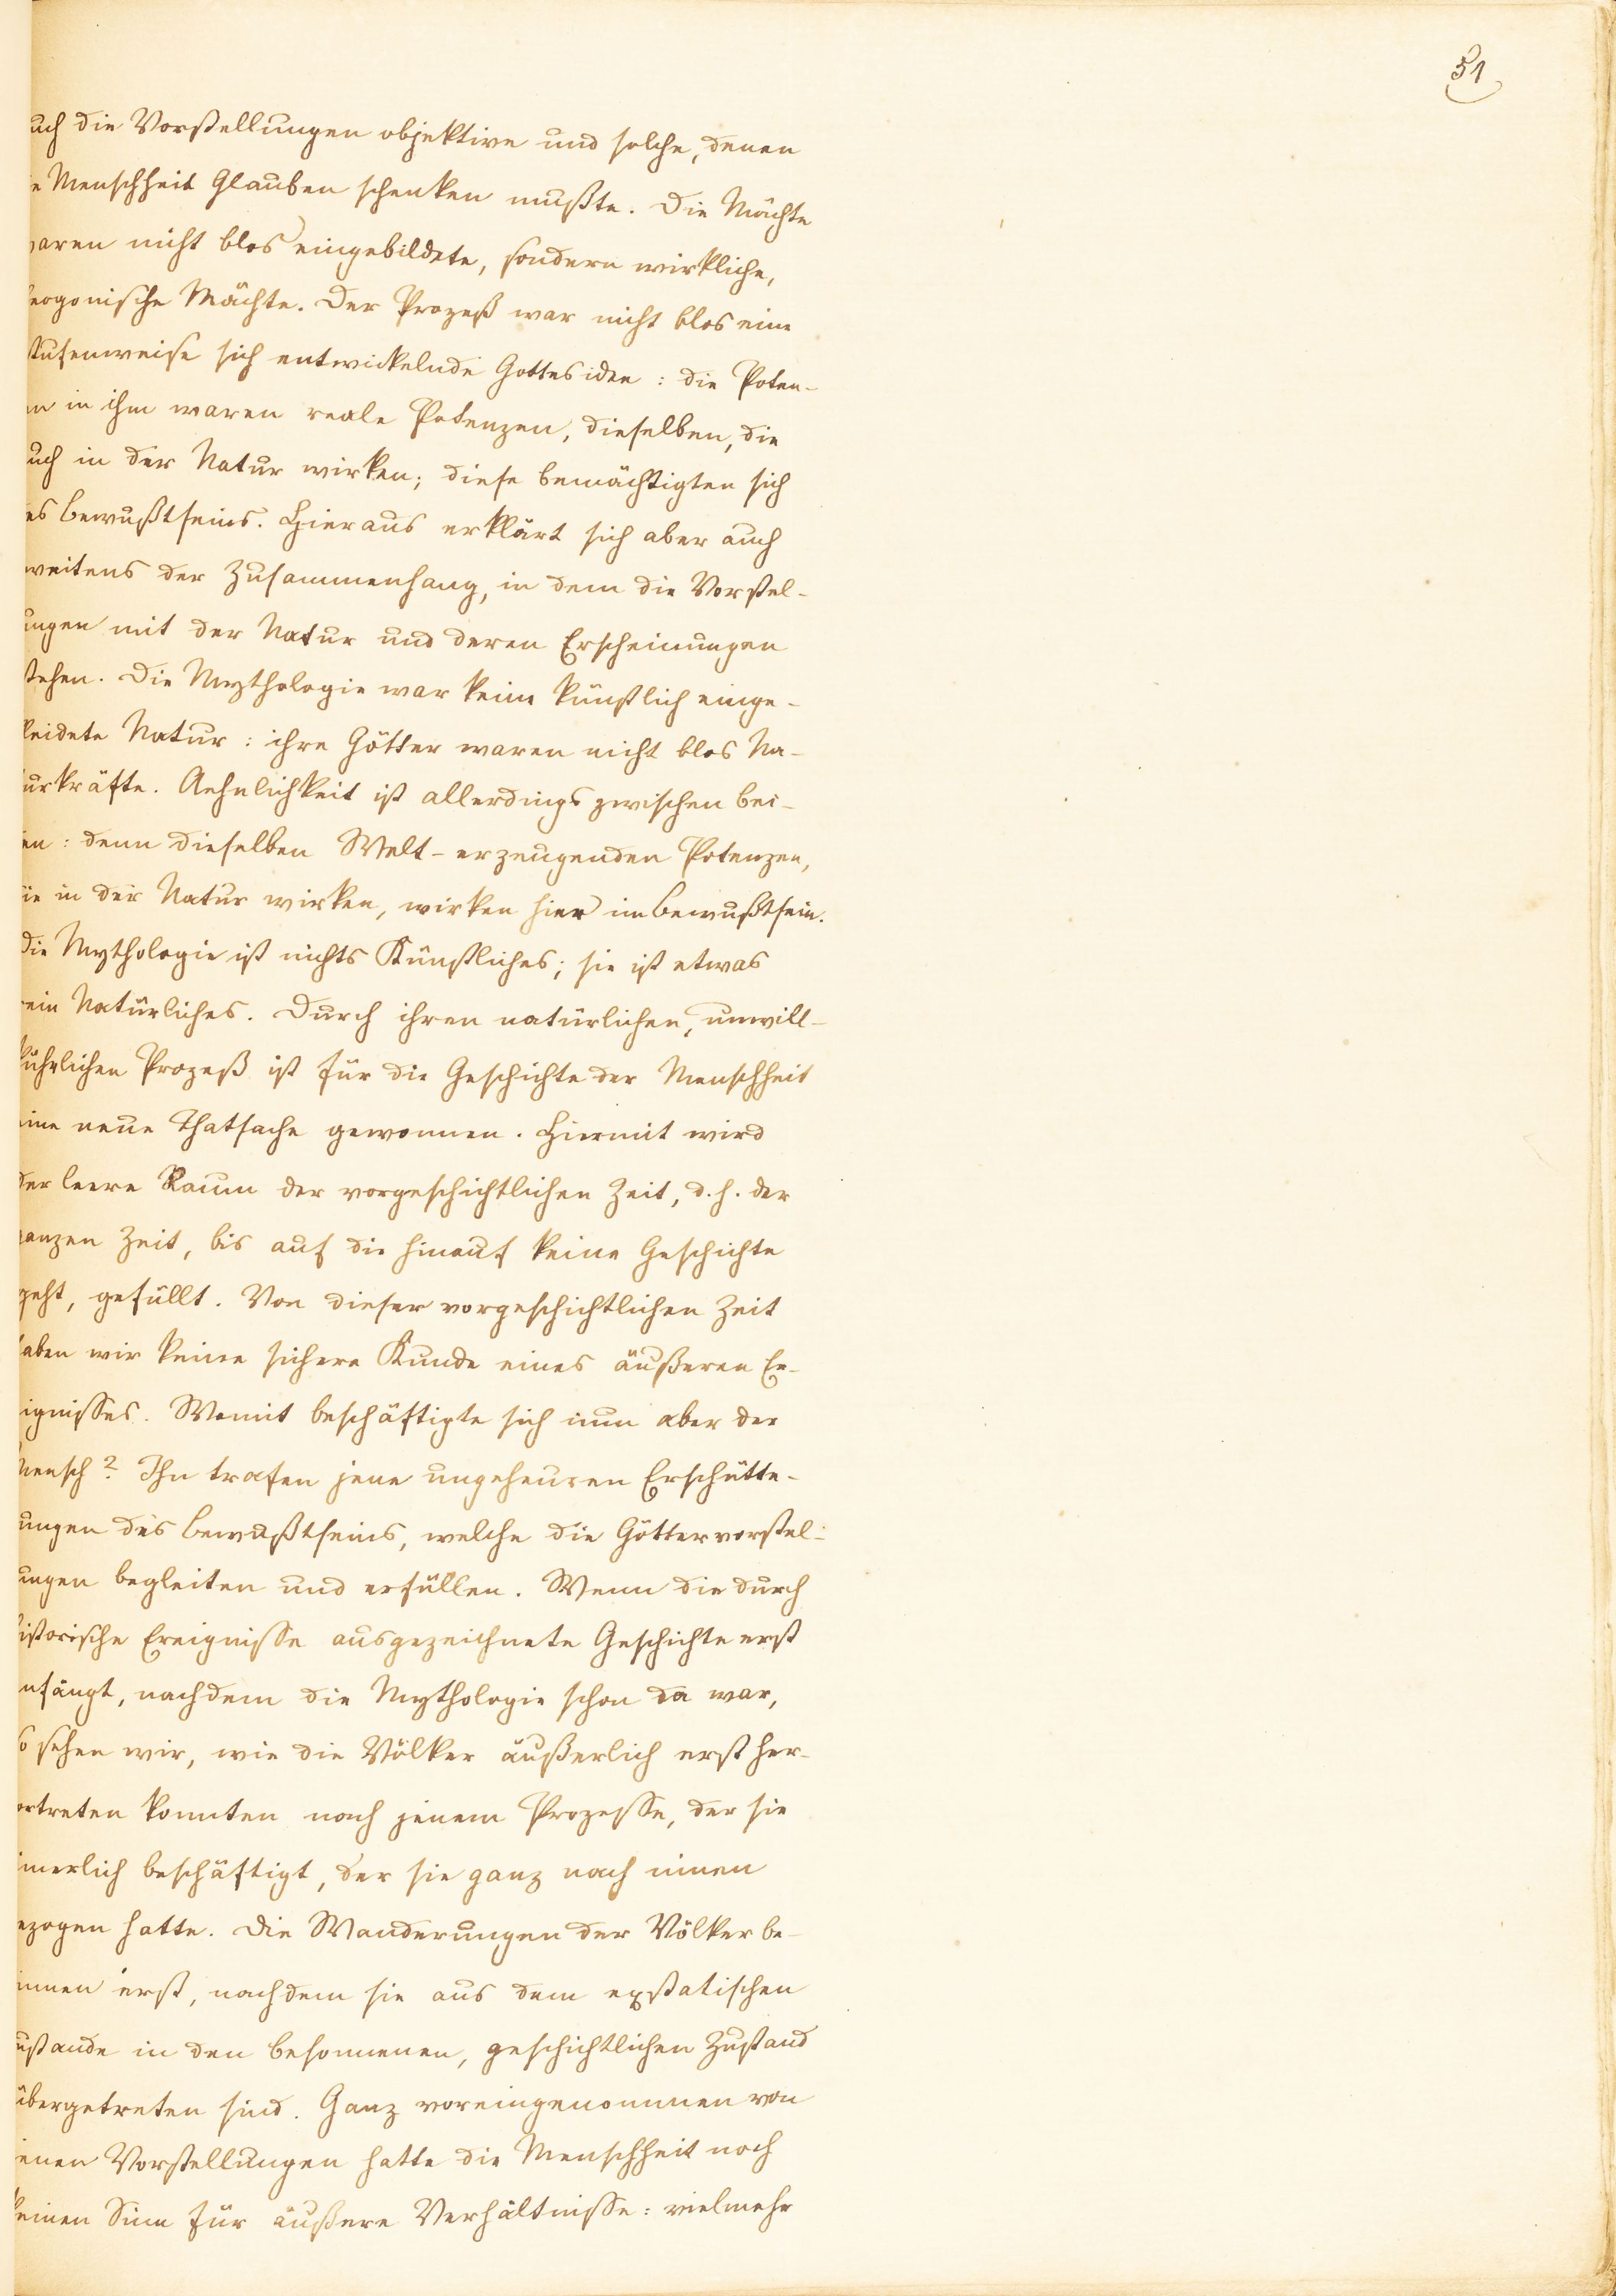 51
uch die Vorstellungen objektive und solche, denen
e Menschheit Glauben schenken mußte. Die Mächte
waren nicht blos eingebildete, sondern wirkliche,
heogonische Mächte. Der Prozeß war nicht blos eine
stufenweise sich entwickelnde Gottesidee: die Poten-
en in ihm waren reale Potenzen, dieselben, die
uch in der Natur wirken; diese bemächtigten sich
es Bewußtseins. Hieraus erklärt sich aber auch
weitens der Zusammenhang, in dem die Vorstel-
ungen mit der Natur und deren Erscheinungen
stehen. Die Mythologie war keine künstlich einge-
kleidete Natur: ihre Götter waren nicht blos Na-
turkräfte. Aehnlichkeit ist allerdings zwischen bei-
en: denn dieselben Welt-erzeugenden Potenzen,
die in der Natur wirken, wirken hier im Bewußtsein.
Die Mythologie ist nichts Künstliches; sie ist etwas
rein Natürliches. Durch ihren natürlichen, unwill-
kührlichen Prozeß ist für die Geschichte der Menschheit
eine neue Thatsache gewonnen. Hiermit wird
der leere Raum der vorgeschichtlichen Zeit, d.h. der
ganzen Zeit, bis auf die hinauf keine Geschichte
geht, gefüllt. Von dieser vorgeschichtlichen Zeit
haben wir keine sichere Kunde eines äußeren Er-
eignisses. Womit beschäftigte sich nun aber der
Mensch? Ihn trafen jene ungeheuren Erschütte-
ungen des Bewußtseins, welche die Göttervorstel-
ungen begleiten und erfüllen. Wenn die durch
historische Ereignisse ausgezeichnete Geschichte erst
nfängt, nachdem die Mythologie schon da war,
so sehen wir, wie die Völker äußerlich erst her-
ortreten konnten nach jenem Prozesse, der sie
innerlich beschäftigt, der sie ganz nach innen
ezogen hatte. Die Wanderungen der Völker be-
innen erst, nachdem sie aus dem exstatischen
ustande in den besonnenen, geschichtlichen Zustand
übergetreten sind. Ganz voreingenommen von
jenen Vorstellungen hatte die Menschheit noch
keinen Sinn für äußere Verhältnisse: vielmehr